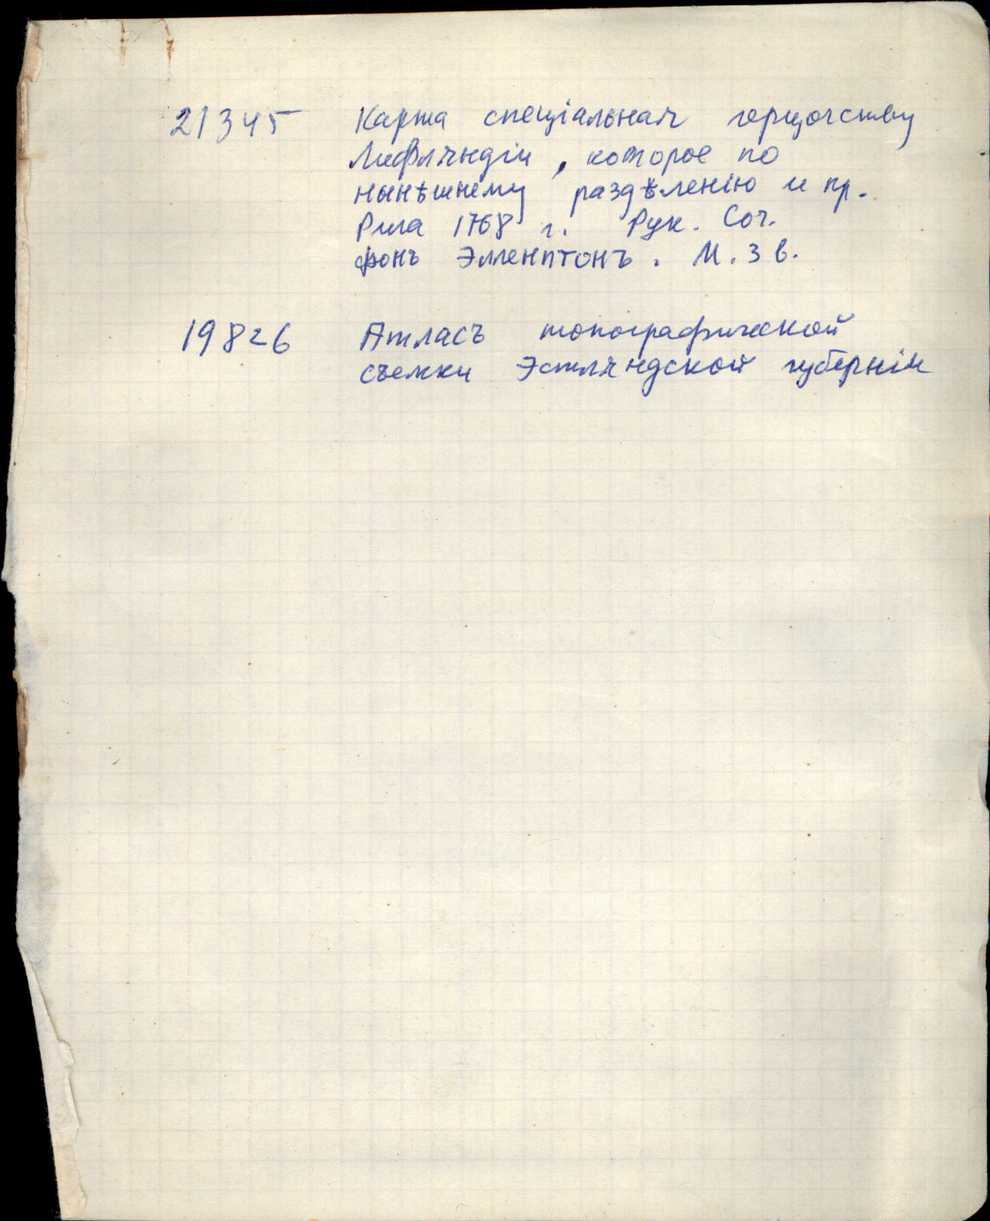 21345 Карта спеціальная герцогству
Лифляндіи, которое по
нынѣшнему раздѣленію и пр.
Рига 1768 г. Рук. Соч.
фонъ Элленптонъ. М. 3 в.
19826 Атласъ топографической
съемки Эстляндской губерніи